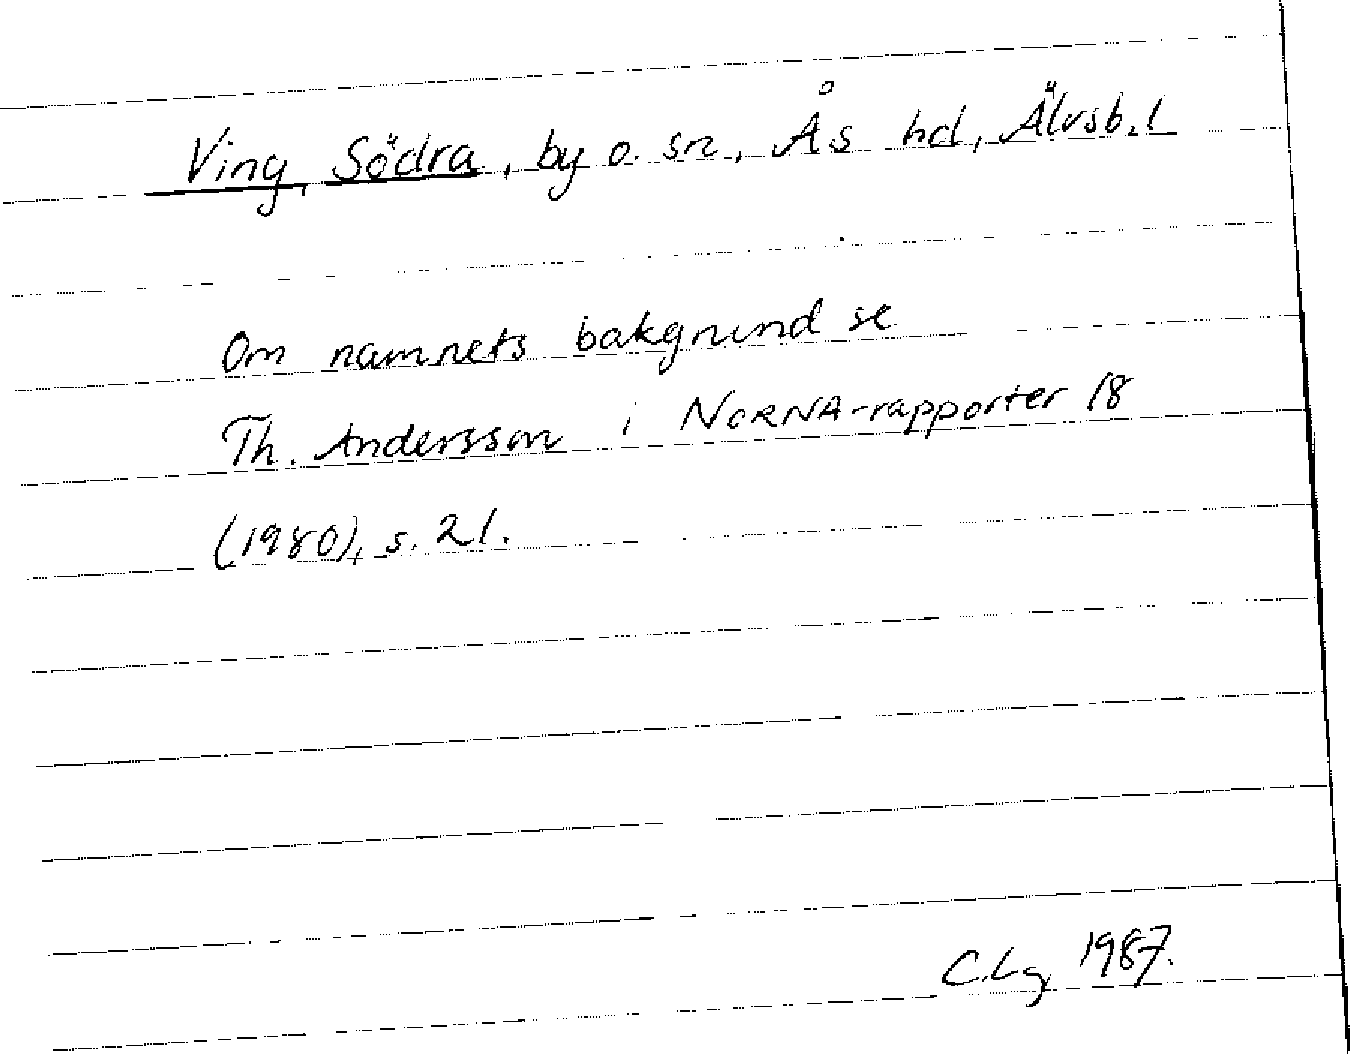 Ving, Södra, by o. sn, Ås hd, Älvsb. l
Om namnets bakgrund se
Th. Andersson i NORNA-rapporter 18
(1980), s. 21.
C.Lg. 1987.